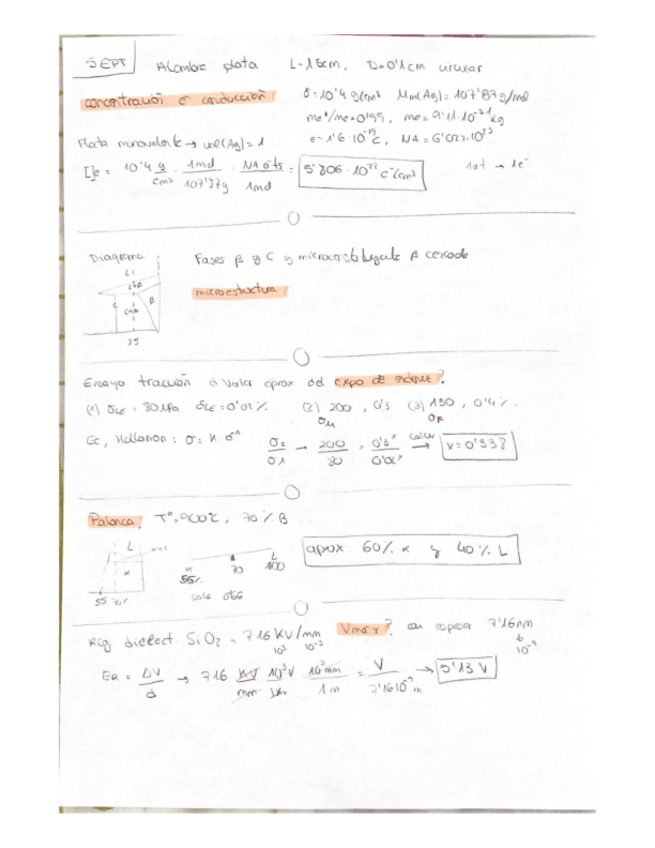 SEPT Alambre plata L=15cm, D=0'1cm circular
concentración e⁻ conducción δ=10'4 g/cm³ Mm(Ag)=107'87g/mol
me*/me=0'99, me=9'11·10⁻³¹ kg
Plata monovalente → val(Ag)=1 e=1'6·10⁻¹⁹C, NA=6'022·10²³
[]e = 10'4 g/cm³ · 1mol/107'87g · NA ats/1mol = 5'806·10²² e⁻/cm³ 1at → 1e⁻
Diagrama Fases β y C y microconstituyente β
L
L+β
β
C
C+β
35
microestructura
Ensayo tracción valor aprox del expo de ?
(1) σLE = 80MPa δLE=0'02% (2) 200, 0'3 (3) 150, 0'4%
σM σF
Ec, Hollomon: σ=K ε^n σ2/σ1 → 200/80 = 0'3^x/0'02^x calcu → x=0'338
Palanca, Tº=900ºC, 70% B
L
α
55
α 55% 70 L 100
sale 0'66
aprox 60% α y 40% L
Rig dieléct SiO2 = 716 KV/mm Vmáx? con espesor 7'16nm
10³ 10⁻³ 10⁻⁹
ER = ΔV/d → 716 KV/mm 10³V/1KV 10³mm/1m = V/7'16·10⁻⁹m → 5'13 V